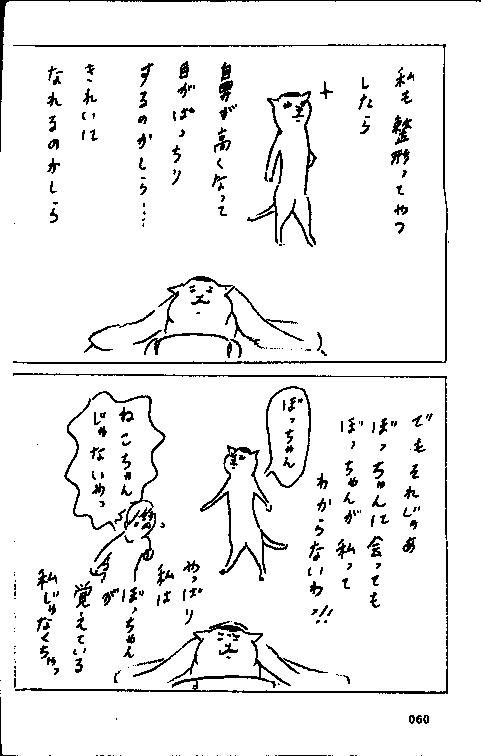 私も整形ってやつ
したら
鼻が高くなって
目がぱっちり
するのかしら…
きれいに
なれるのかしら
でもそれじゃあ
ぼっちゃんに会っても
ぼっちゃんが私って
わからないわっ!!
ぼっちゃん
ねこちゃん
じゃないやっ
やっぱり
私は
ぼっちゃん
が
覚えている
私じゃなくちゃっ
060